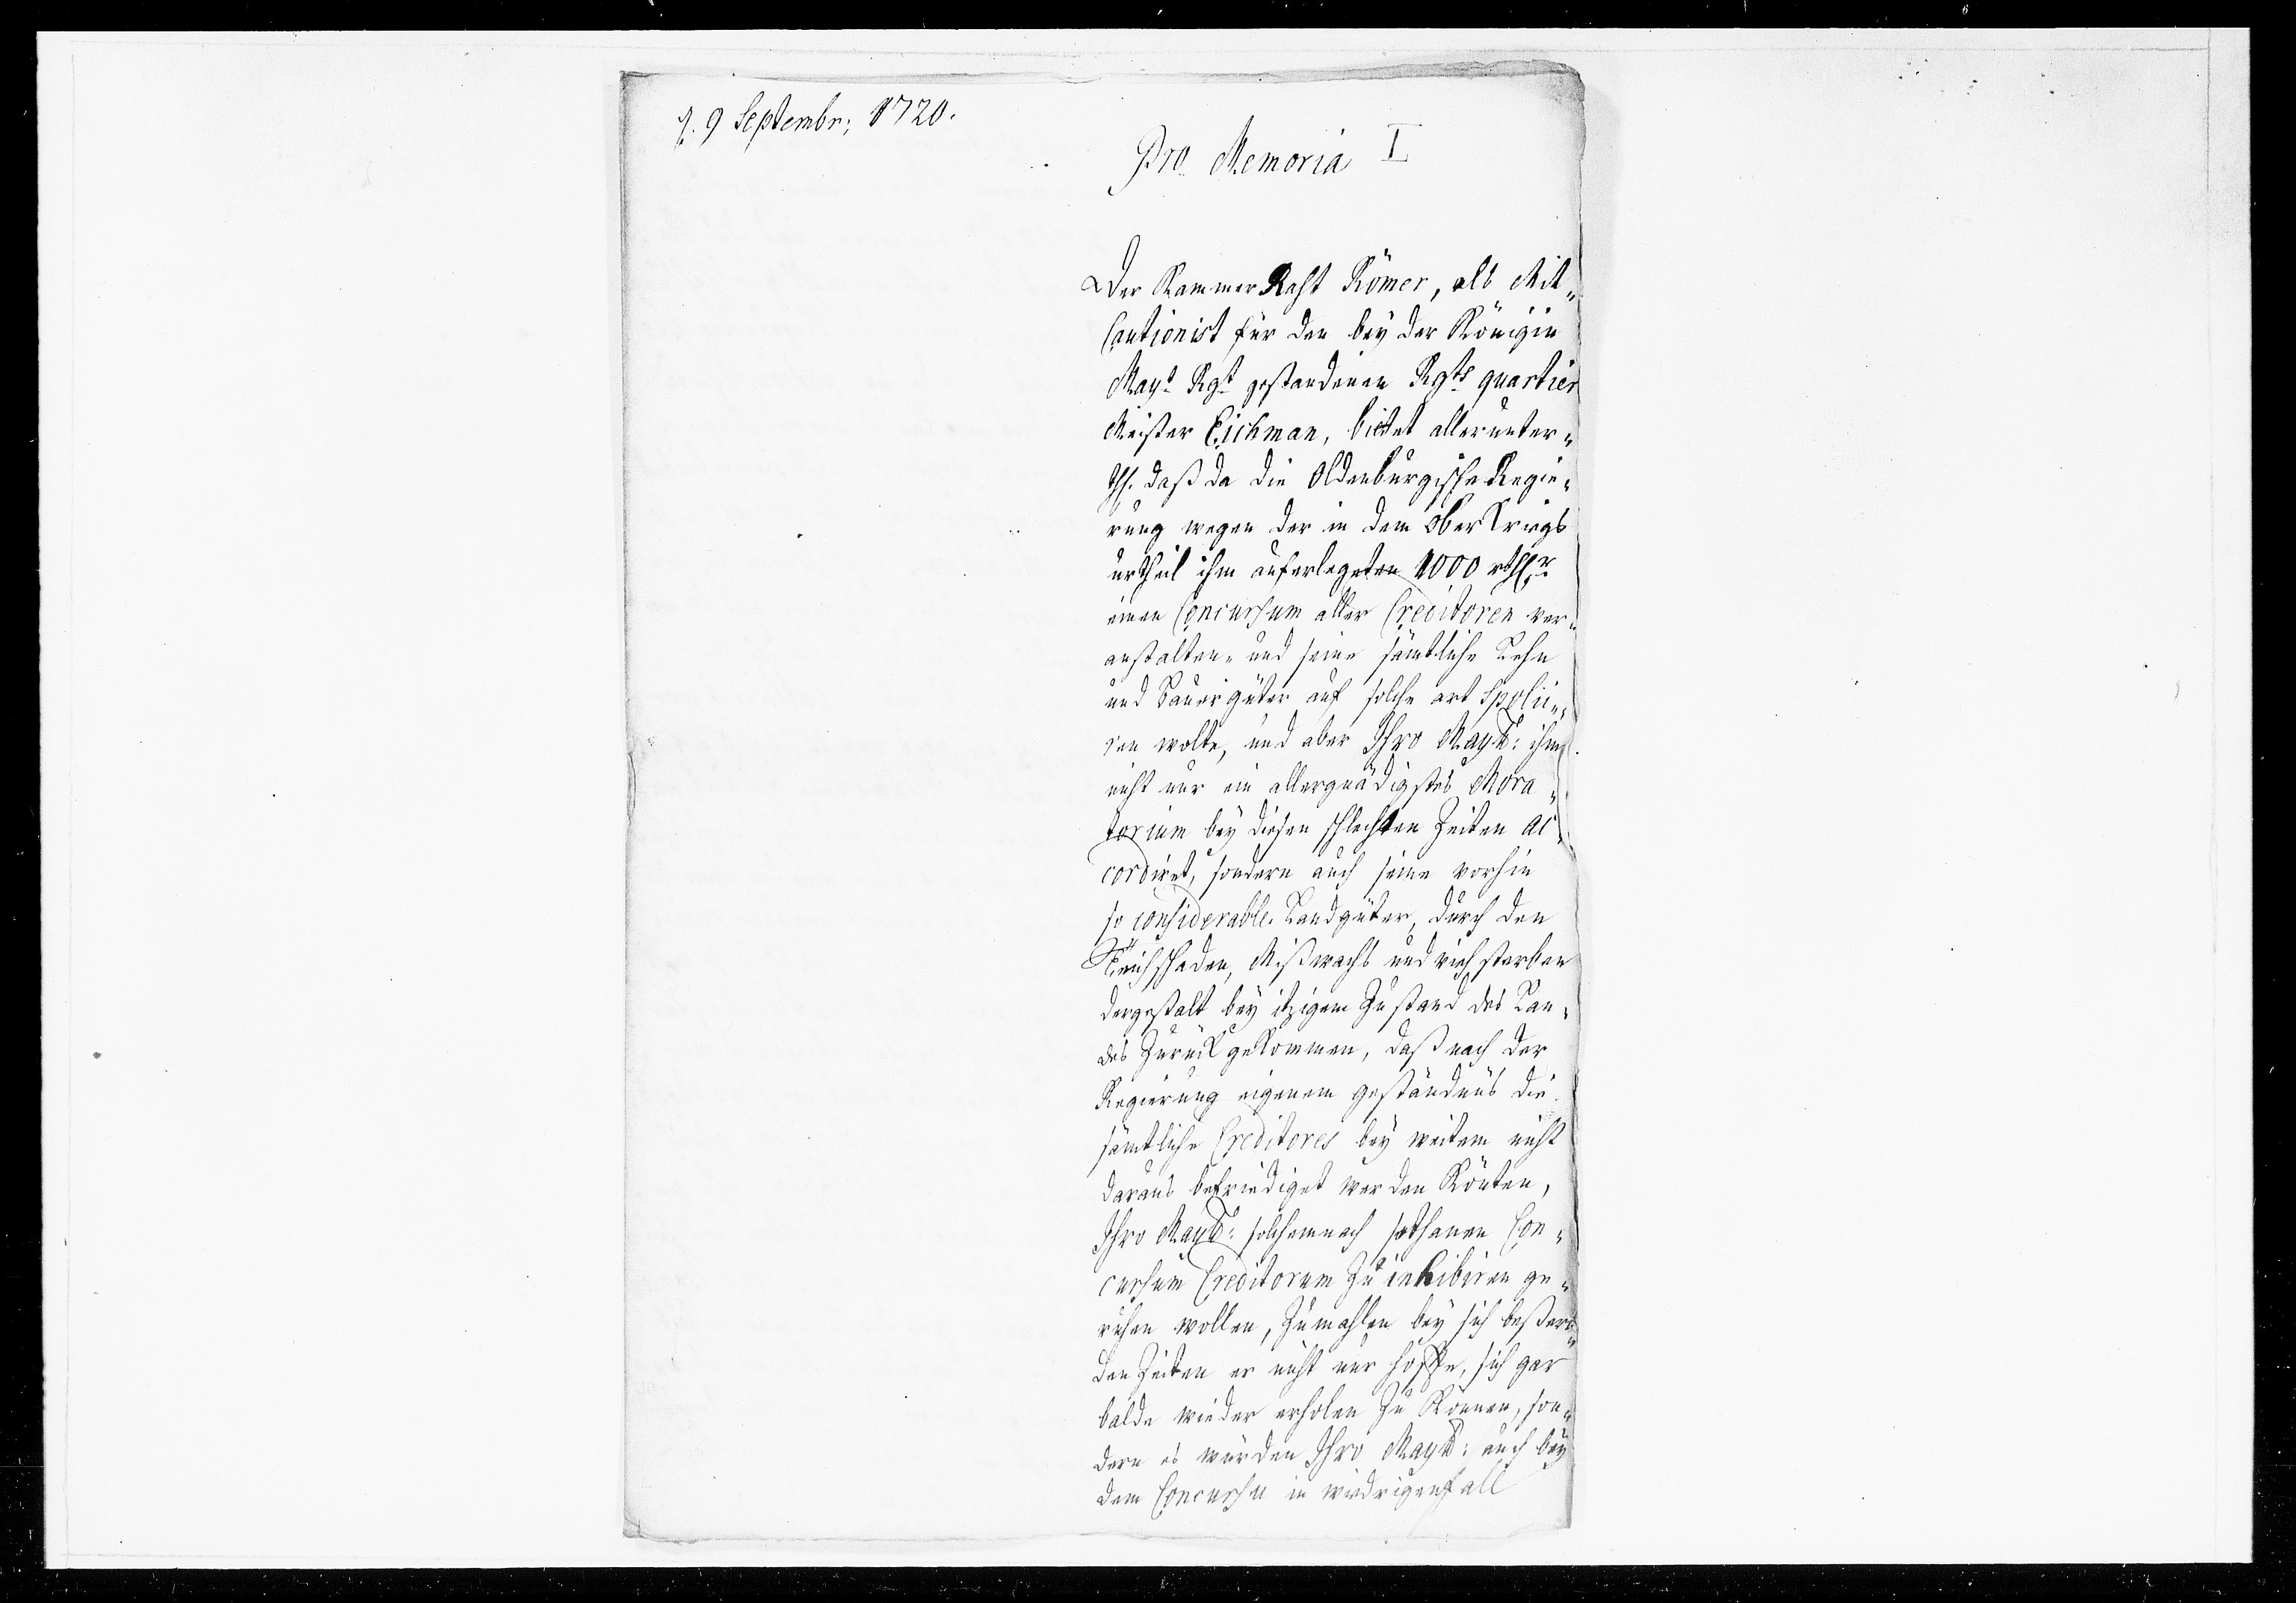 d. 9 Septembr; 1720.
Pro Memoria I
Der KammerRaht Römer, als Mit„
Cautionist für den bey der Königin
Mayt Rgt gestandenen Rgts quartier
Meister Eichman, bittet allerunter„
th. daß da die Oldenburgische Regie„
rung wegen der in dem Ober Kriegs
urtheil ihm auferlegeten 1000 rthlr
einen Concursum aller Creditoren ver„
anstalten„ und seine sämtliche Lehn
und Bauergüter auf solche art Spolii„
ren wolte, und aber Ihro Maytt: ihm
nicht nur ein allergnädigstes Mora„
torium bey diesen schlechten Zeiten ac„
cordiret, sondern auch seine vorhin
so considerable Landgüter, durch den
Teichschaden, Mißwachs und viehsterben
dergestalt bey itzigem Zustand des Lan„
des Zurück gekommen, daß nach der
Regierung eigenem geständnüs die
sämtliche Creditores bey weitem nicht
daraus befriediget werden Könten,
Ihro Maytt: solchemnach sothanen Con„
cursum Creditorum Zu inhibiren ge„
ruhen wollen, Zumahlen bey sich beßern„
den Zeiten er nicht nur hoffe, sich gar
balde wieder erholen Zu Können, son„
dern es würden Ihro Maytt: auch bey
dem Concursu in wiedrigenfall